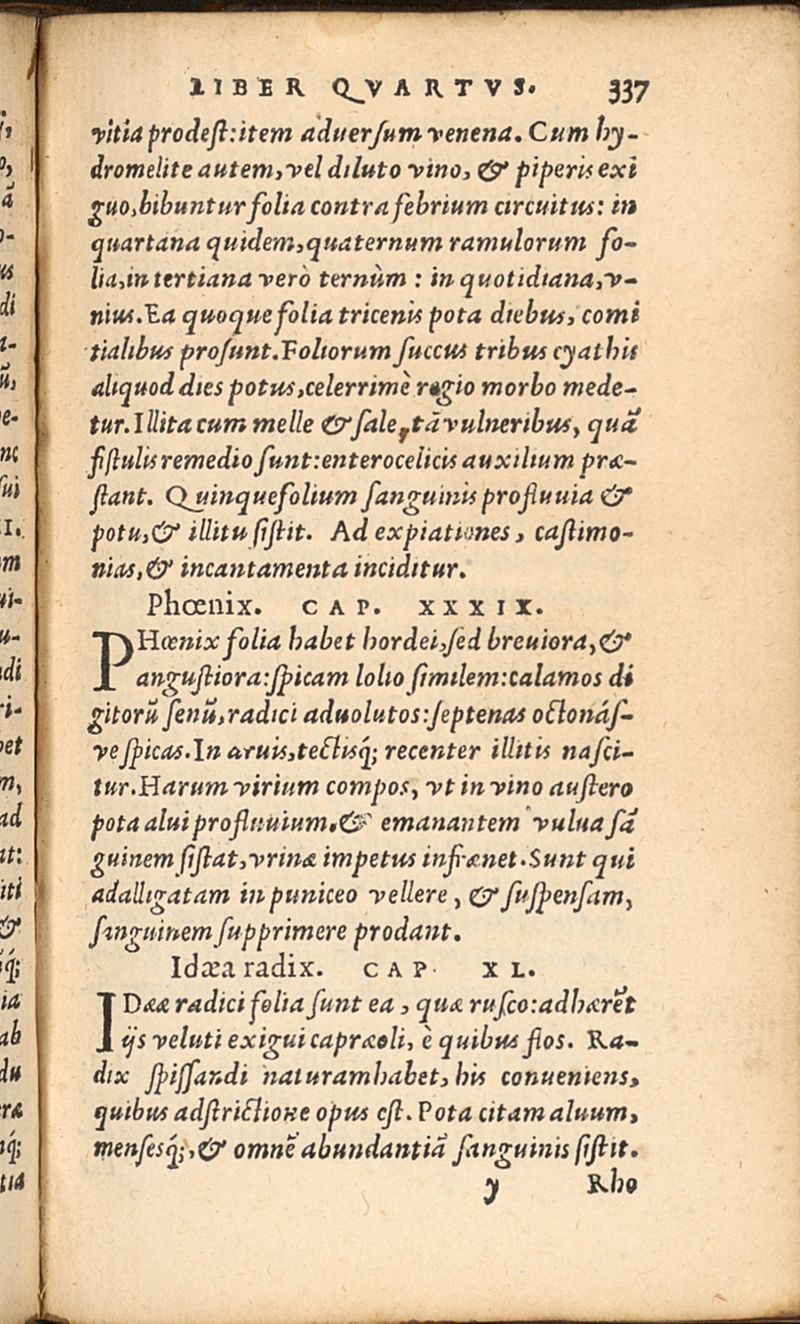 LIBER QVARTVS. 337
vitia prodeſt: item aduerſum venena. Cum hy-
dromelite autem, vel diluto vino, & piperis exi
guo, bibuntur folia contra febrium circuitus: in
quartana quidem, quaternum ramulorum fo-
lia, in tertiana verò ternûm: in quotidiana, v-
nius. Ea quoque folia tricenis pota diebus, comi
tialibus proſunt. Foliorum ſuccus tribus cyathis
aliquod dies potus, celerrimè regio morbo mede-
tur. Illita cum melle & ſale, tã vulneribus, quã
fiſtulis remedio ſunt: enterocelicis auxilium præ-
ſtant. Quinquefolium ſanguinis profluuia &
potu, & illitu ſiſtit. Ad expiationes, caſtimo-
nias, & incantamenta inciditur.
Phœnix. CAP. XXXIX.
PHœnix folia habet hordei, ſed breuiora, &
anguſtiora: ſpicam lolio ſimilem: calamos di
gitorũ ſenũ, radici aduolutos: ſeptenas octonáſ-
ve ſpicas. In aruis, tectisq́; recenter illitis naſci-
tur. Harum virium compos, vt in vino auſtero
pota alui profluuium, & emanantem vulua ſã
guinem ſiſtat, vrinæ impetus infrænet. Sunt qui
adalligatam in puniceo vellere, & ſuſpenſam,
ſanguinem ſupprimere prodant.
Idæa radix. CAP. XL.
IDææ radici folia ſunt ea, quæ ruſco: adhærẽt
ijs veluti exigui capræoli, è quibus flos. Ra-
dix ſpiſſandi naturam habet, his conueniens,
quibus adſtrictione opus eſt. Pota citam aluum,
menſesq́;, & omnẽ abundantiã ſanguinis ſiſtit.
y Rho